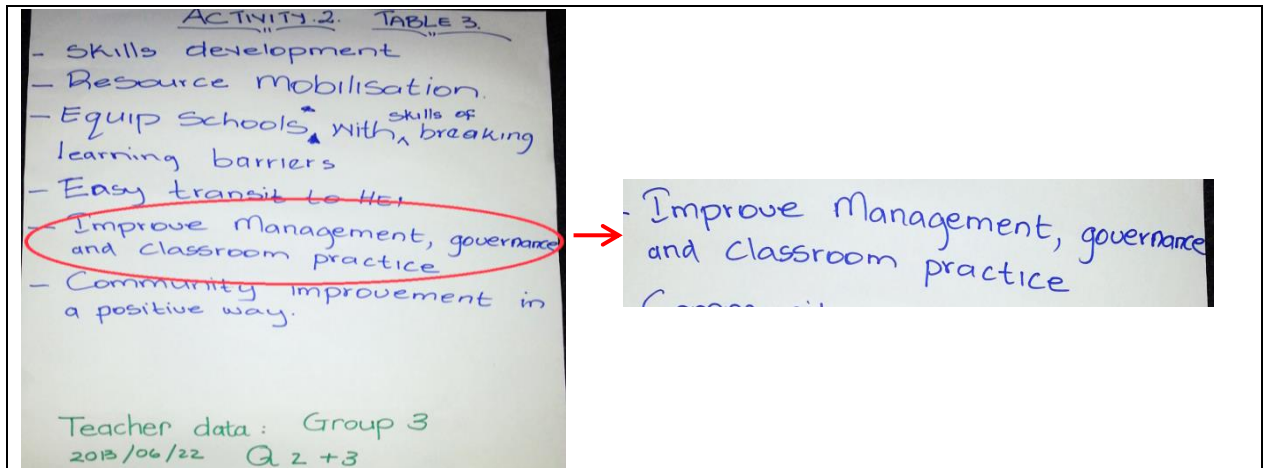 ACTIVITY.2. TABLE 3.
- Skills development
- Resource Mobilisation.
- Equip Schools with skills of breaking
learning barriers
- Easy transit to HEI
- Improve Management, governance
and Classroom practice
- Community improvement in
a positive way.
Teacher data: Group 3
2013/06/22 Q 2 + 3
- Improve Management, governance
and Classroom practice